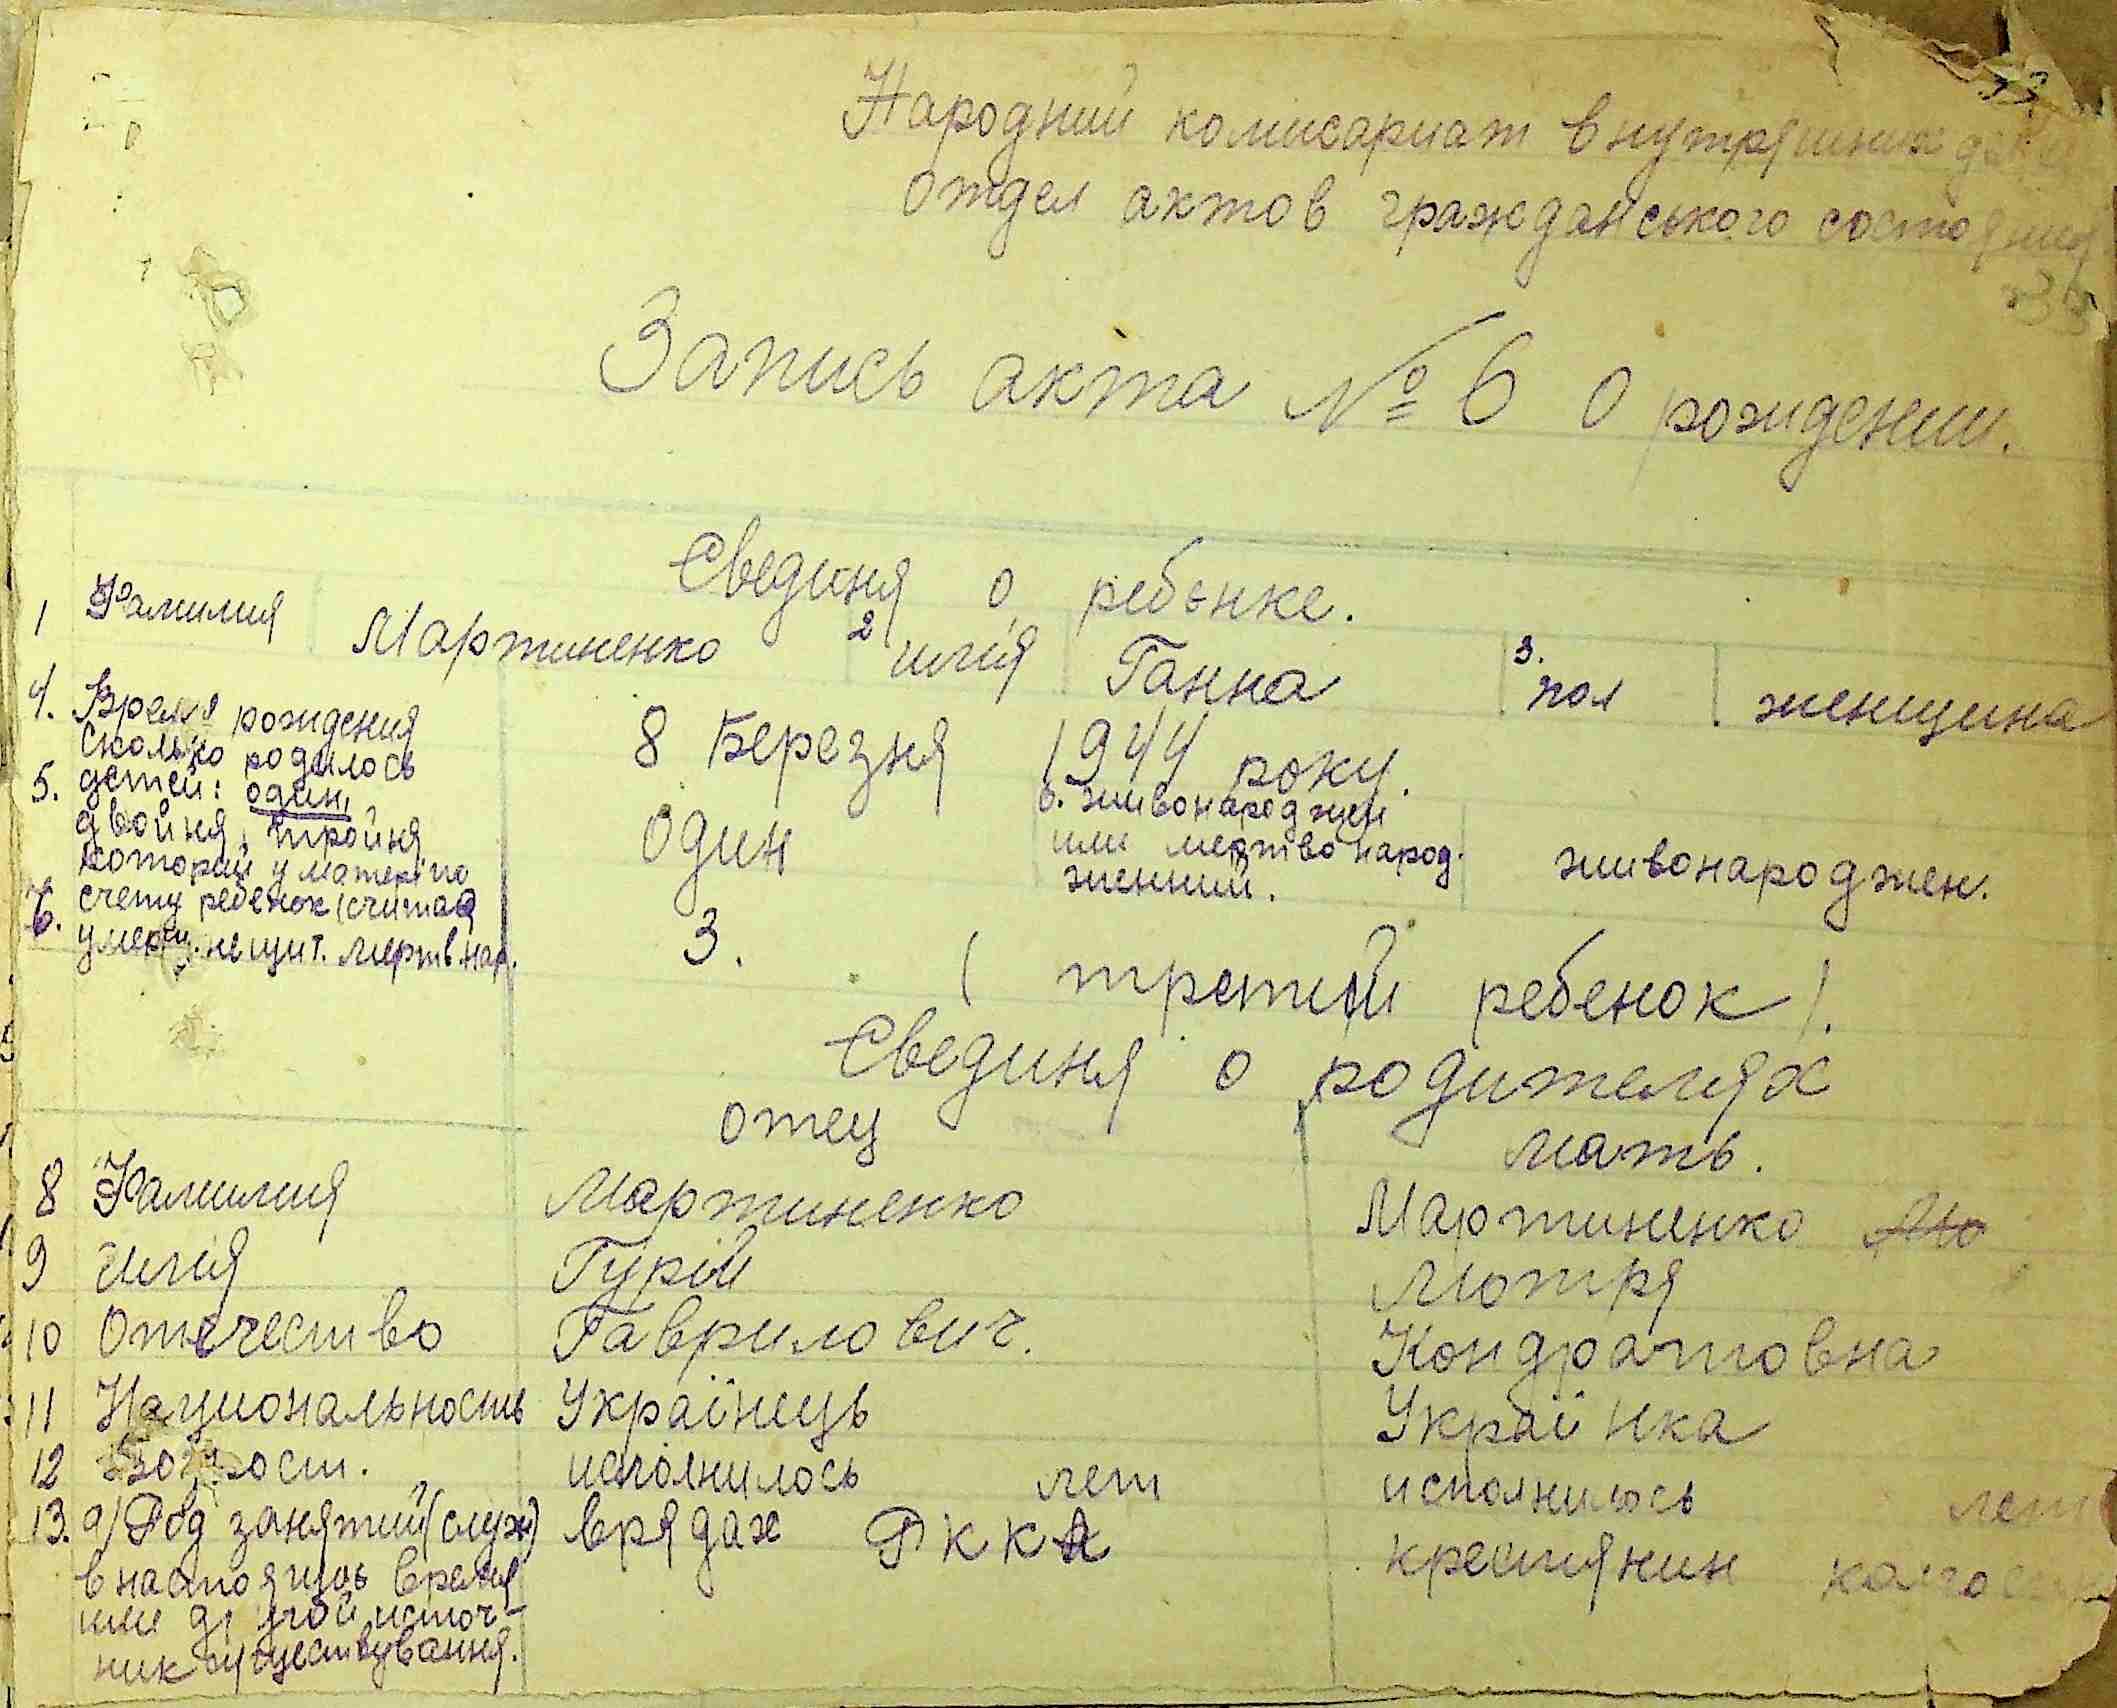 33
Народний комисариат внутряшних
отдел актов гражданського состояния
33
Запись акта № 6 о рождении.
Свединя о ребенке.
1 Фамилия Мартиненко 2 имя Ганна 3. пол женщина
4. Время рождения 8 Березня 1944 року.
сколько родилось
5. детей: один, один 6. живонароджен
двойня, тройня или мертвонарод- живонароджен.
который у матери по женний.
7. счету ребенок (считая 3. (третий ребенок).
умерш. не щит. мертвнар.
Свединя о родителях
отец мать.
8 Фамилия Мартиненко Мартиненко
9 имя Гурій Мотря
10 Отечество Гаврилович. Кондратовна
11 Национальность Українець Українка
12 Возрост. исполнилось лет исполнилось лет
13. а) Род занятий (служ) врядах РККА крестянин
внастоящоь время
или другой источ-
ник существування.